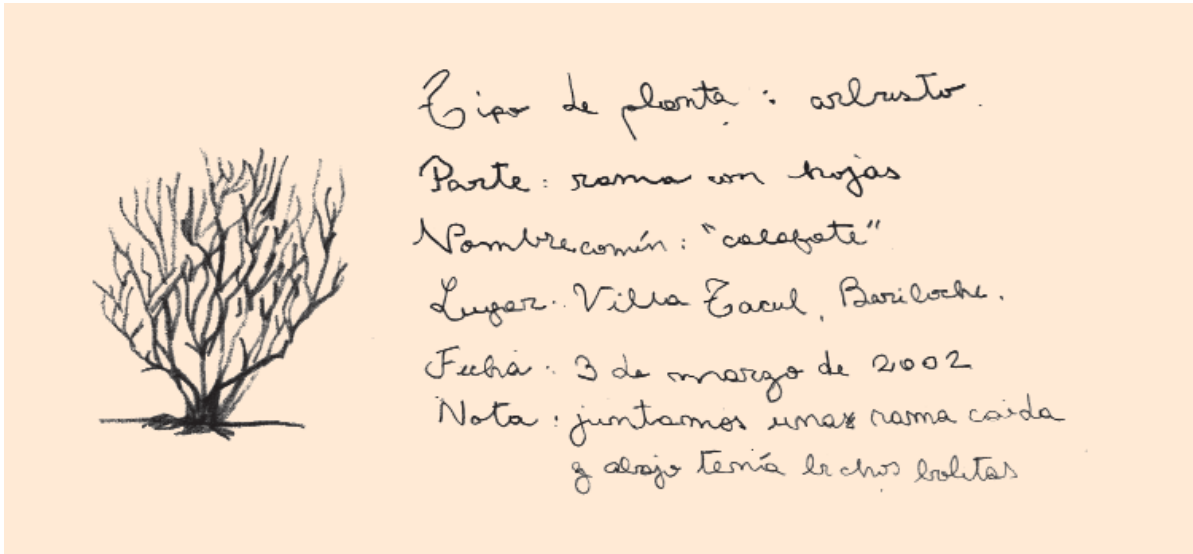 Tipo de planta : arbusto.
Parte : rama con hojas
Nombre común : "calafate"
Lugar : Villa Tacul, Bariloche.
Fecha : 3 de marzo de 2002
Nota : juntamos una rama caída
y abajo tenía bichos bolitas